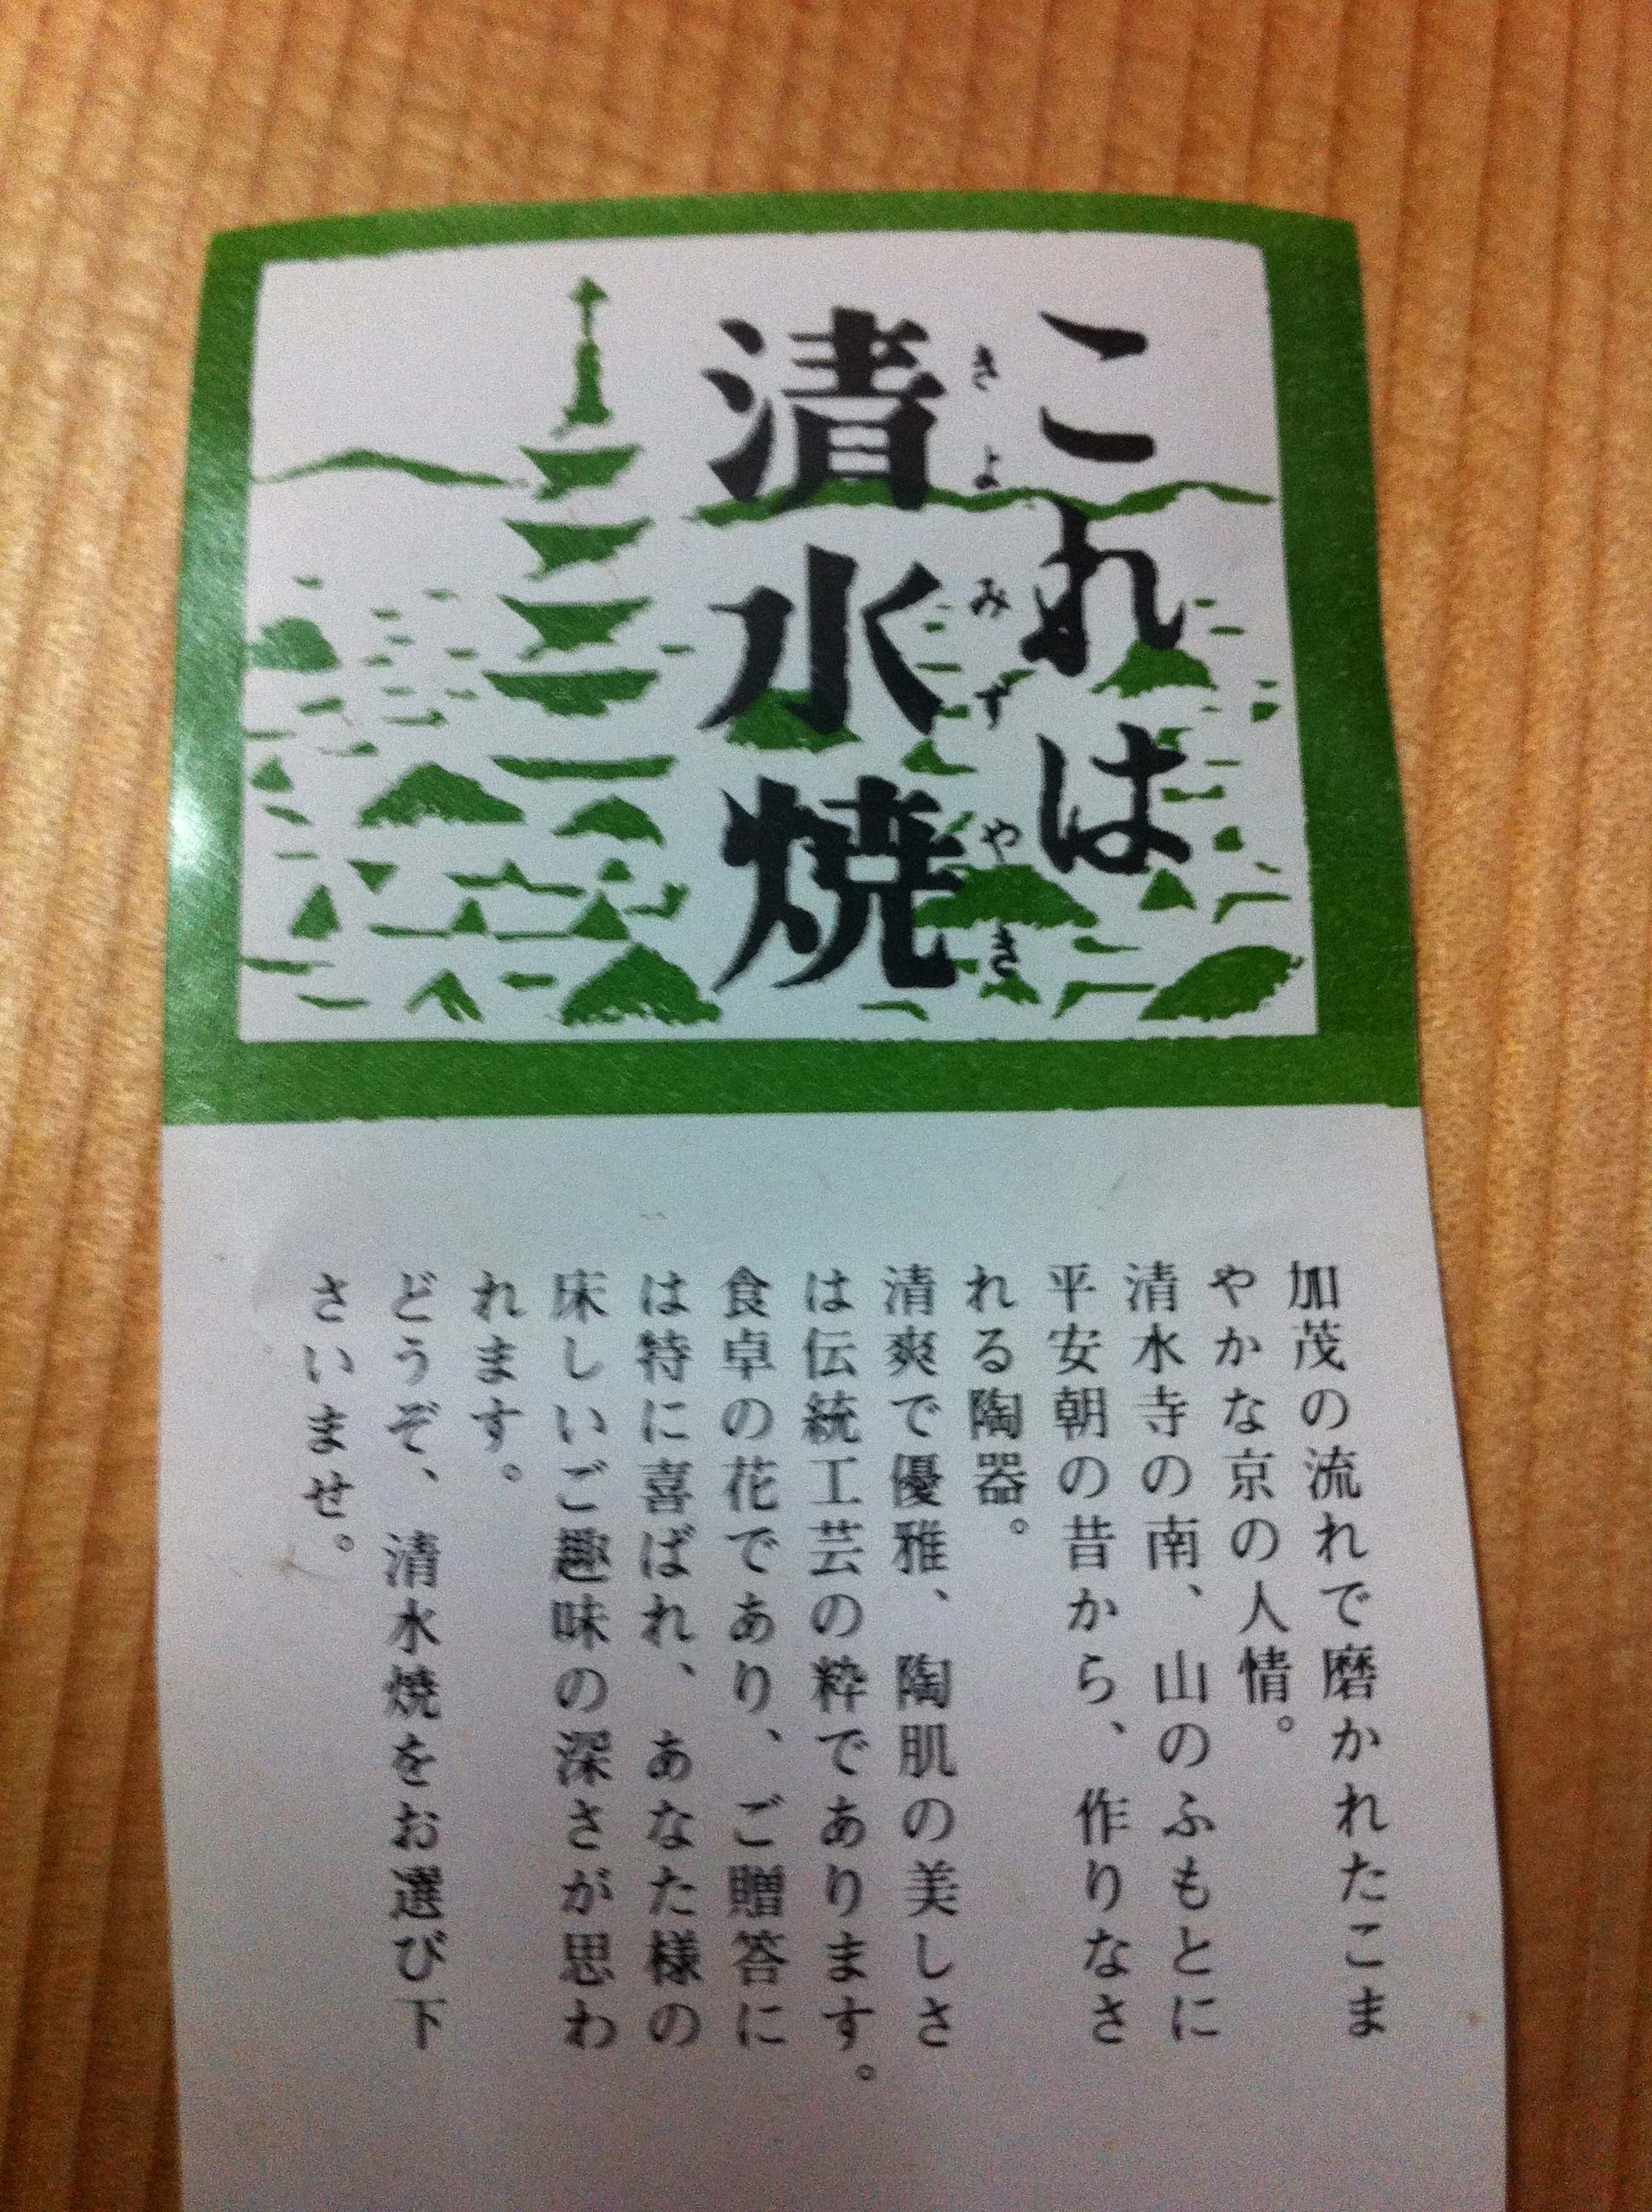 これは
清水焼
きよみずやき
加茂の流れで磨かれたこま
やかな京の人情。
清水寺の南、山のふもとに
平安朝の昔から、作りなさ
れる陶器。
清爽で優雅、陶肌の美しさ
は伝統工芸の粋であります。
食卓の花であり、ご贈答に
は特に喜ばれ、あなた様の
床しいご趣味の深さが思わ
れます。
どうぞ、清水焼をお選び下
さいませ。